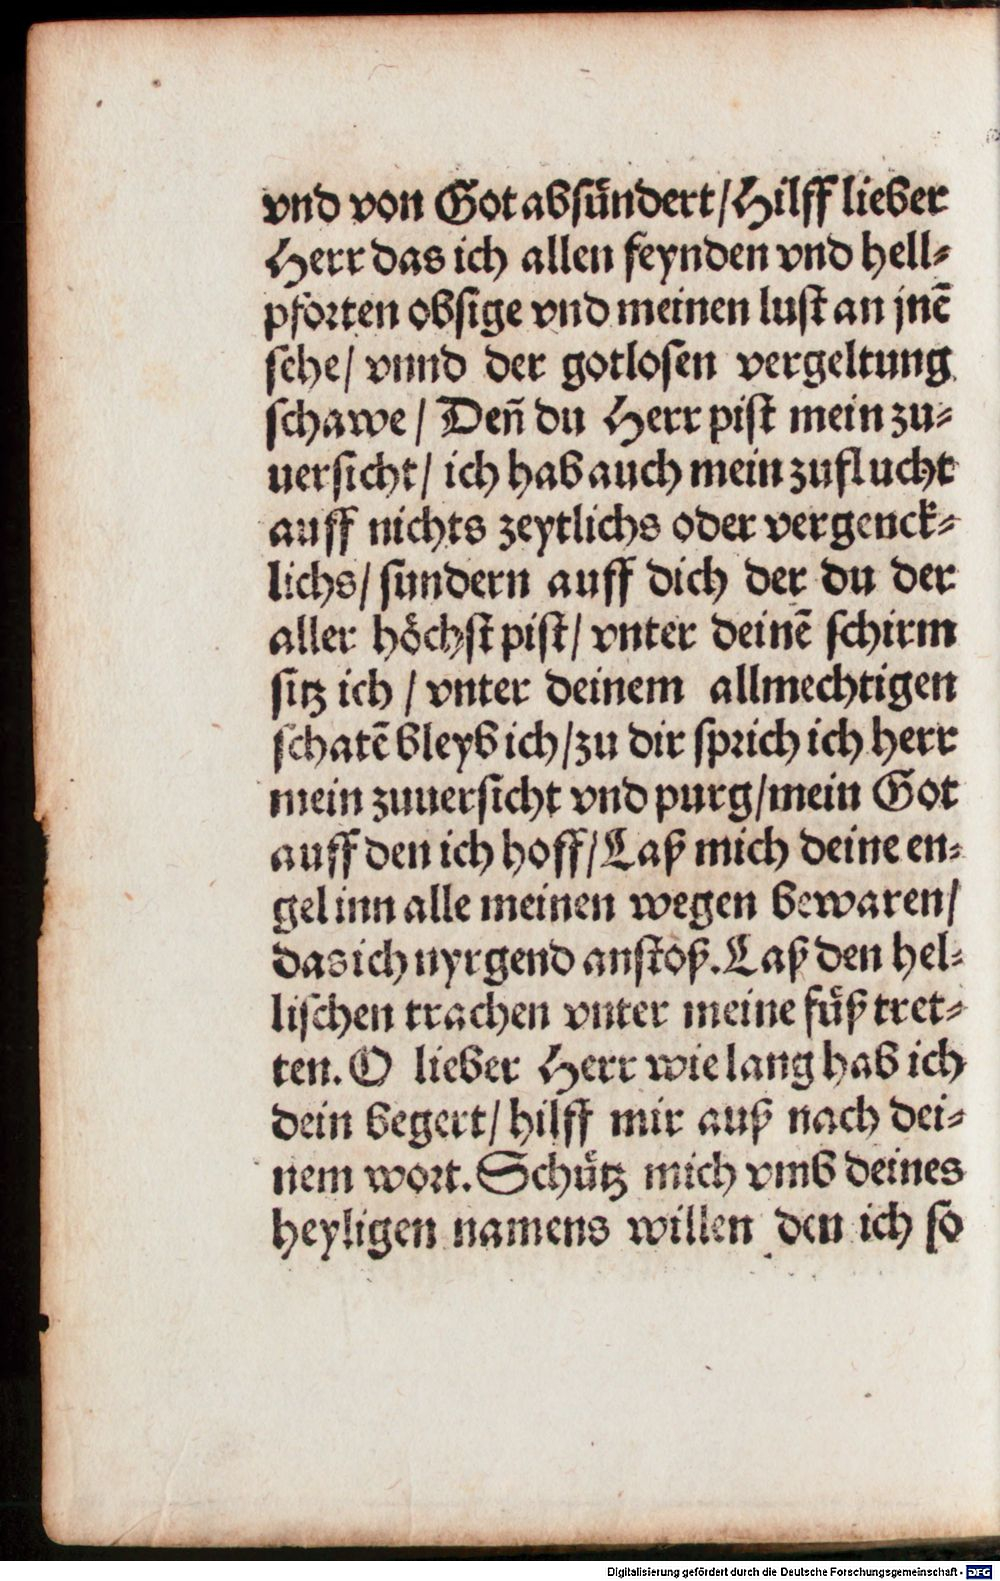 vnd von Got absündert/Hilff lieber
Herr das ich allen feynden vnd hell⸗
pforten obsige vnd meinen lust an jnē
sehe/ vnnd der gotlosen vergeltung
schawe/ Den̄ du Herr pist mein zu⸗
uersicht/ ich hab auch mein zuflucht
auff nichts zeytlichs oder vergenck⸗
lichs/ sundern auff dich der du der
aller höchst pist/ vnter deinē schirm
sitz ich / vnter deinem allmechtigen
schatē bleyb ich/zu dir sprich ich herr
mein zuuersicht vnd purg/mein Got
auff den ich hoff/Laß mich deine en⸗
gel inn alle meinen wegen bewaren/
das ich nyrgend anstoß.Laß den hel⸗
lischen trachen vnter meine füß tret⸗
ten. O lieber Herr wie lang hab ich
dein begert/ hilff mir auß nach dei⸗
nem wort.Schütz mich vmb deines
heyligen namens willen den ich so
Digitalisierung gefördert durch die Deutsche Forschungsgemeinschaft - DFG